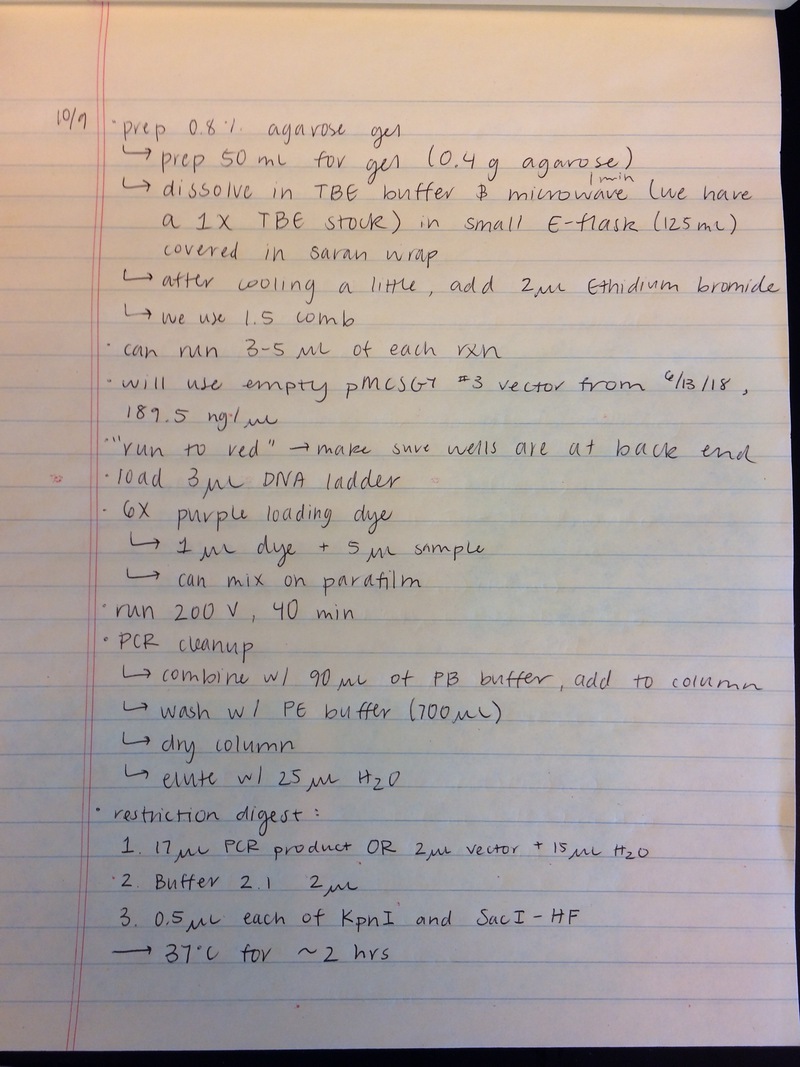 10/9 · prep 0.8% agarose gel
↳ prep 50 mL for gel (0.4 g agarose)
1 min
↳ dissolve in TBE buffer & microwave (we have
a 1X TBE stock) in small E-flask (125 mL)
covered in saran wrap
↳ after cooling a little, add 2 µL Ethidium bromide
↳ we use 1.5 comb
· can run 3-5 µL of each rxn
· will use empty pMCSG7 #3 vector from 6/13/18,
189.5 ng/µL
· "run to red" → make sure wells are at back end
· load 3 µL DNA ladder
· 6X purple loading dye
↳ 1 µL dye + 5 µL sample
↳ can mix on parafilm
· run 200 V, 40 min
· PCR cleanup
↳ combine w/ 90 µL of PB buffer, add to column
↳ wash w/ PE buffer (700 µL)
↳ dry column
↳ elute w/ 25 µL H2O
· restriction digest:
1. 17 µL PCR product OR 2 µL vector + 15 µL H2O
2. Buffer 2.1 2 µL
3. 0.5 µL each of KpnI and SacI-HF
→ 37°C for ~2 hrs